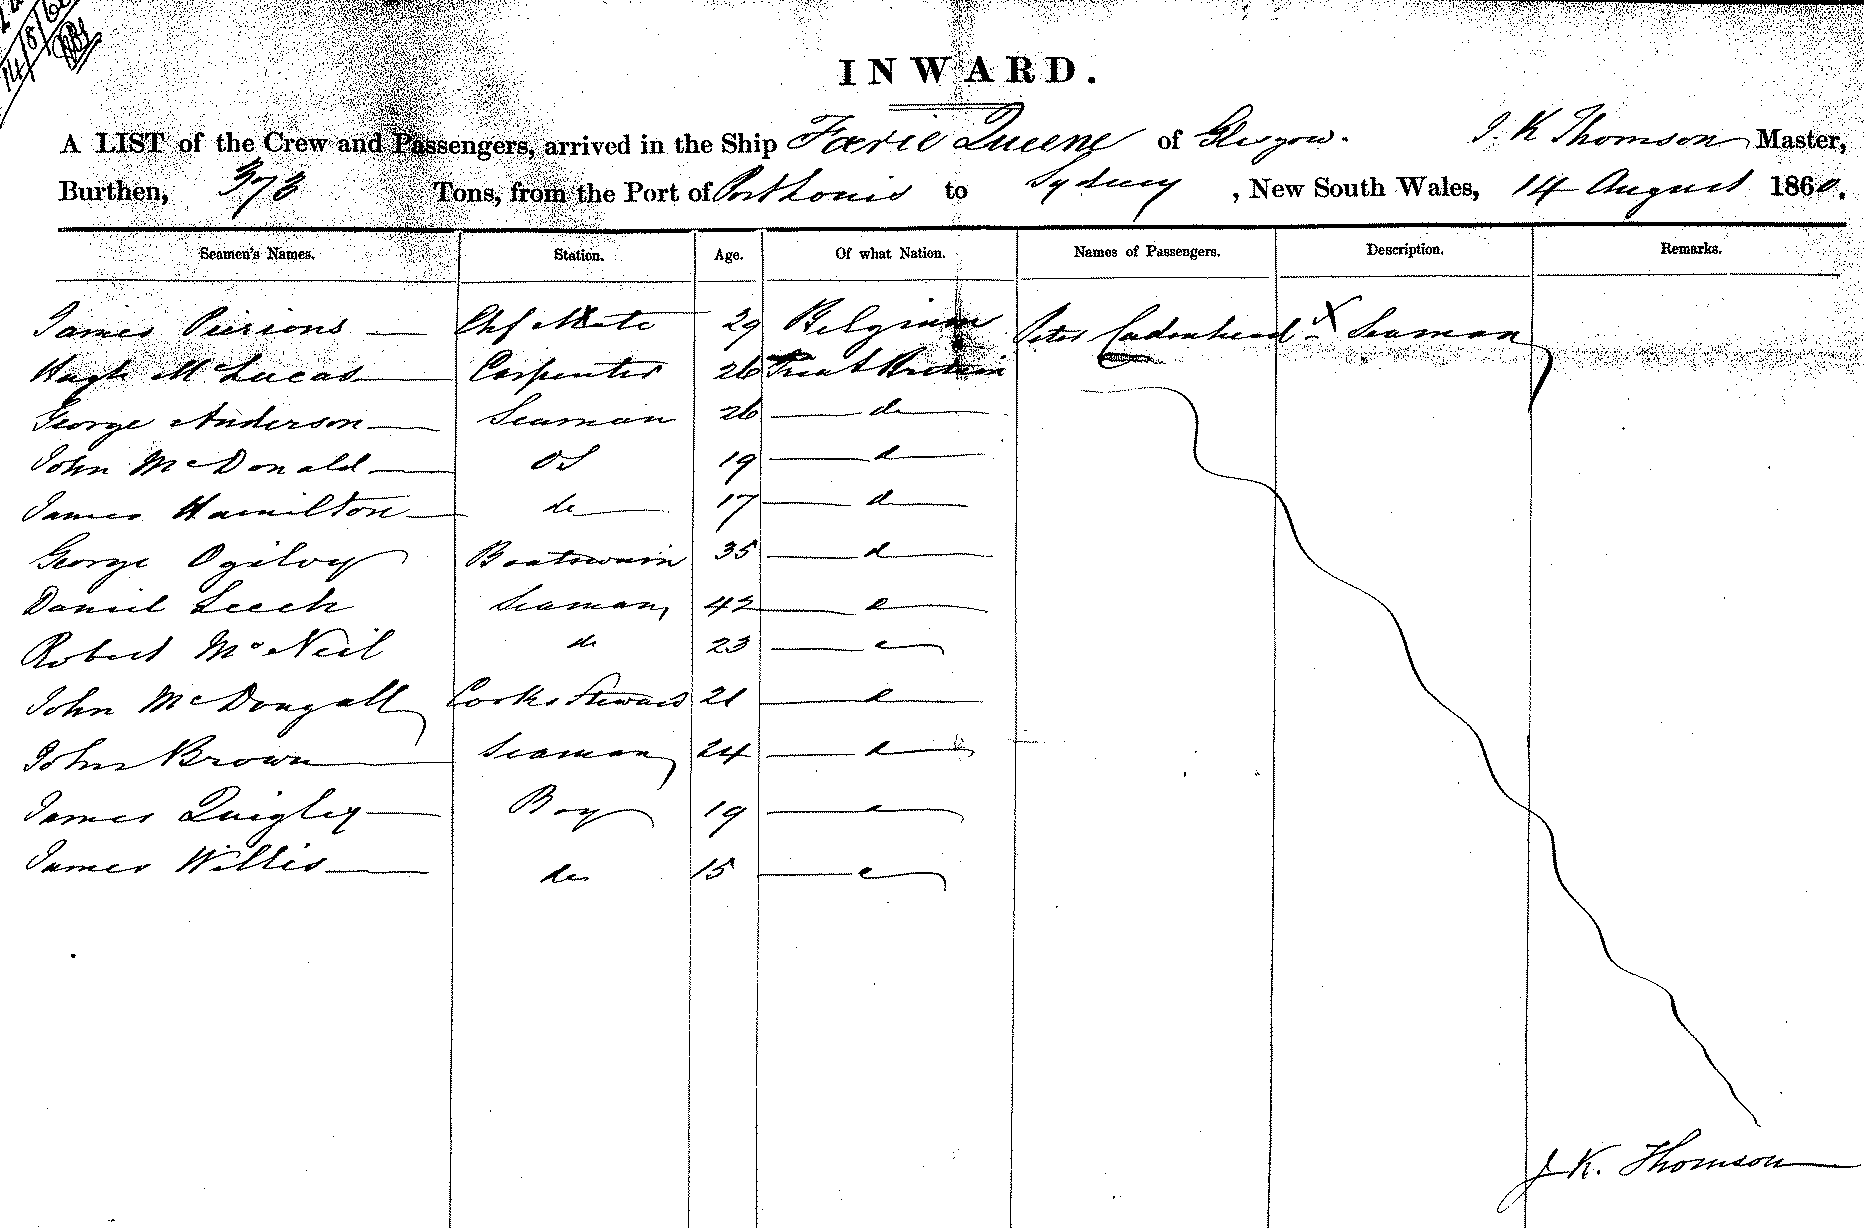 14/8/60
INWARD.
A LIST of the Crew and Passengers, arrived in the Ship Faerie Queene of Glasgow. J. K Thomson Master,
Burthen, 373 Tons, from the Port of Port Louis to Sydney, New South Wales, 14 August 1860.
Seamen's Names. Station. Age. Of what Nation. Names of Passengers. Description. Remarks.
James Piersons Chf Mate 29 Belgium Peter Cadenhead X Seaman
Hugh McLucas Carpenter 26 Great Britain
George Anderson Seaman 26 do
John McDonald OS 19 do
James Hamilton do 17 do
George Ogilvy Boatswain 35 do
Daniel Leech Seaman 42 do
Robert McNeil do 23 do
John McDougall Cook & Steward 21 do
John Brown Seaman 24 do
James Quigley Boy 19 do
James Willis do 15 do
J. K. Thomson